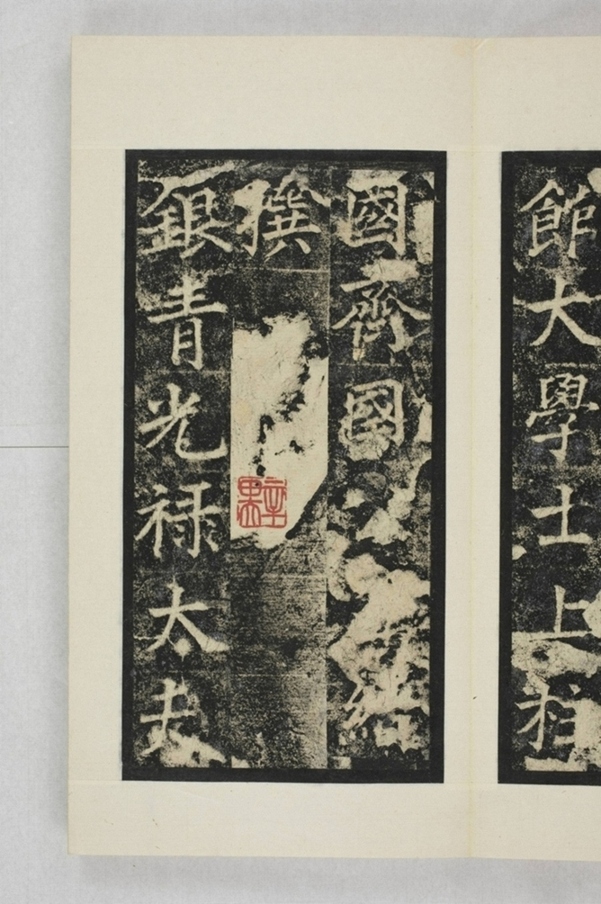 館大學士上柱
國齊國
撰
銀青光禄太夫